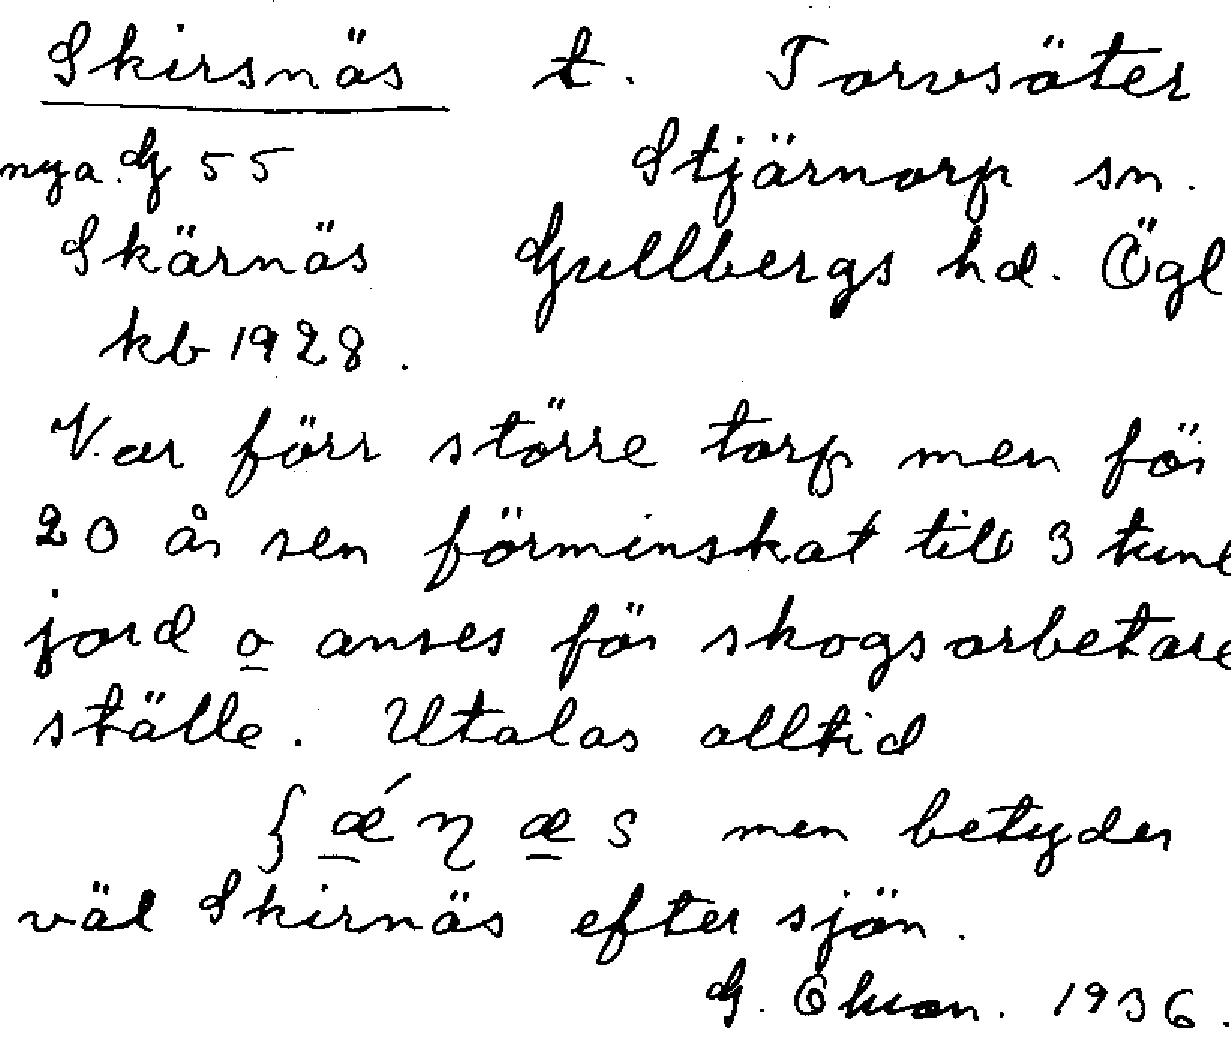 Skirsnäs t. Torvsäter
nya. G 55 Stjärnorp sn.
Skärnäs Gullbergs hd. Ögl
kb 1928.
Var förr större torp men för
20 år sen förminskat till 3 tunl
jord o anses för skogsarbetare
ställe. Utalas alltid
ʃǽŋæs men betyder
väl Skirnäs efter sjön.
G. 1936.